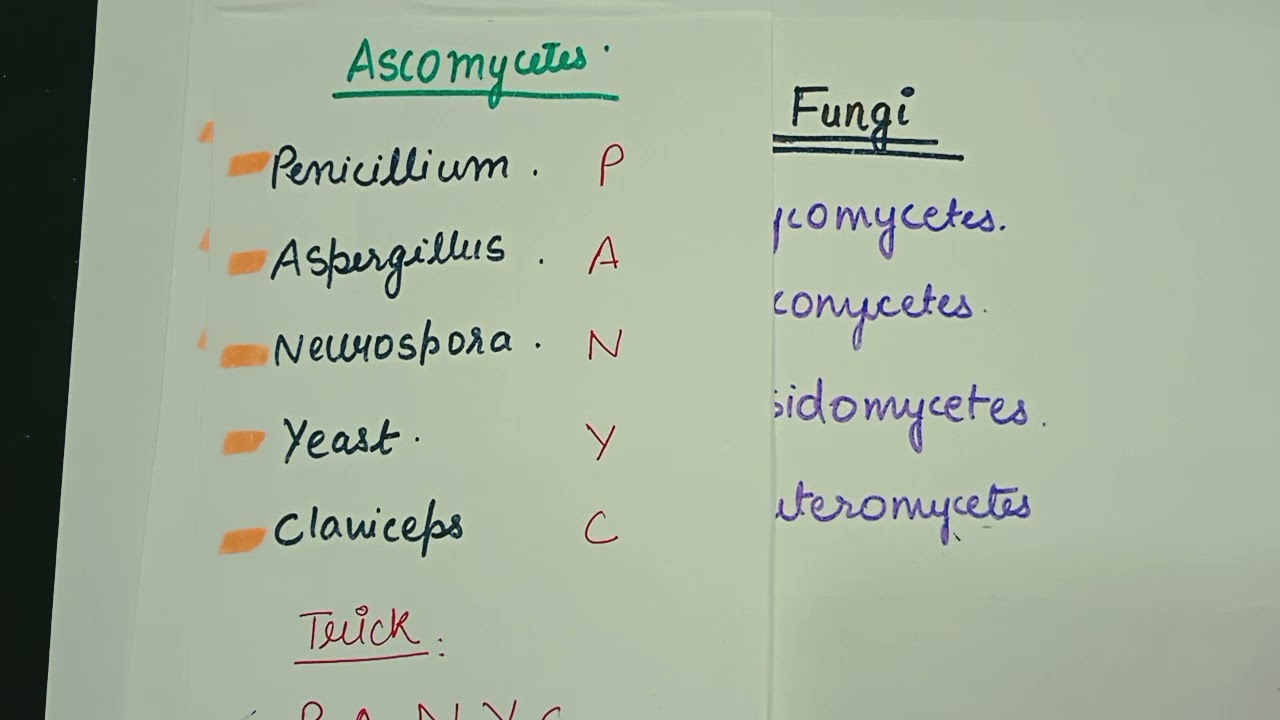 Ascomycetes.
Penicillium. P
Aspergillus. A
Neurospora. N
Yeast. Y
Claviceps C
Trick:
P A N Y C
Fungi
ycomycetes.
comycetes.
sidomycetes.
uteromycetes